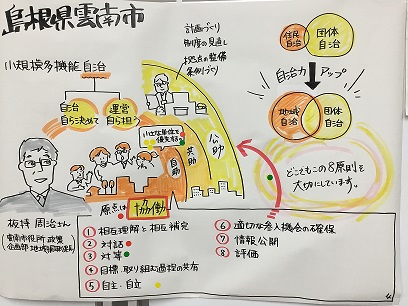 島根県雲南市
小規模多機能自治
自治
自ら決めて
運営
自ら担
計画づくり
制度の見直し
拠点の整備
条例づくり
小さな単位を
優先する
自助
共助
公助
住民
自治
団体
自治
自治力アップ
地域
自治
団体
自治
どこでもこの8原則を
大切にしています。
板持 周治さん
雲南市役所 政策
原点は協働
① 相互理解と相互補完
② 対話
③ 対等
④ 目標・取り組む過程の共有
⑤ 自主・自立
⑥ 適切な参入機会の確保
⑦ 情報公開
⑧ 評価